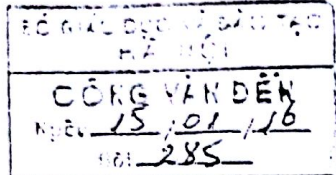 SỞ GIÁO DỤC VÀ ĐÀO TẠO
HÀ NỘI
CÔNG VĂN ĐẾN
Ngày 15/01/16
Số: 285